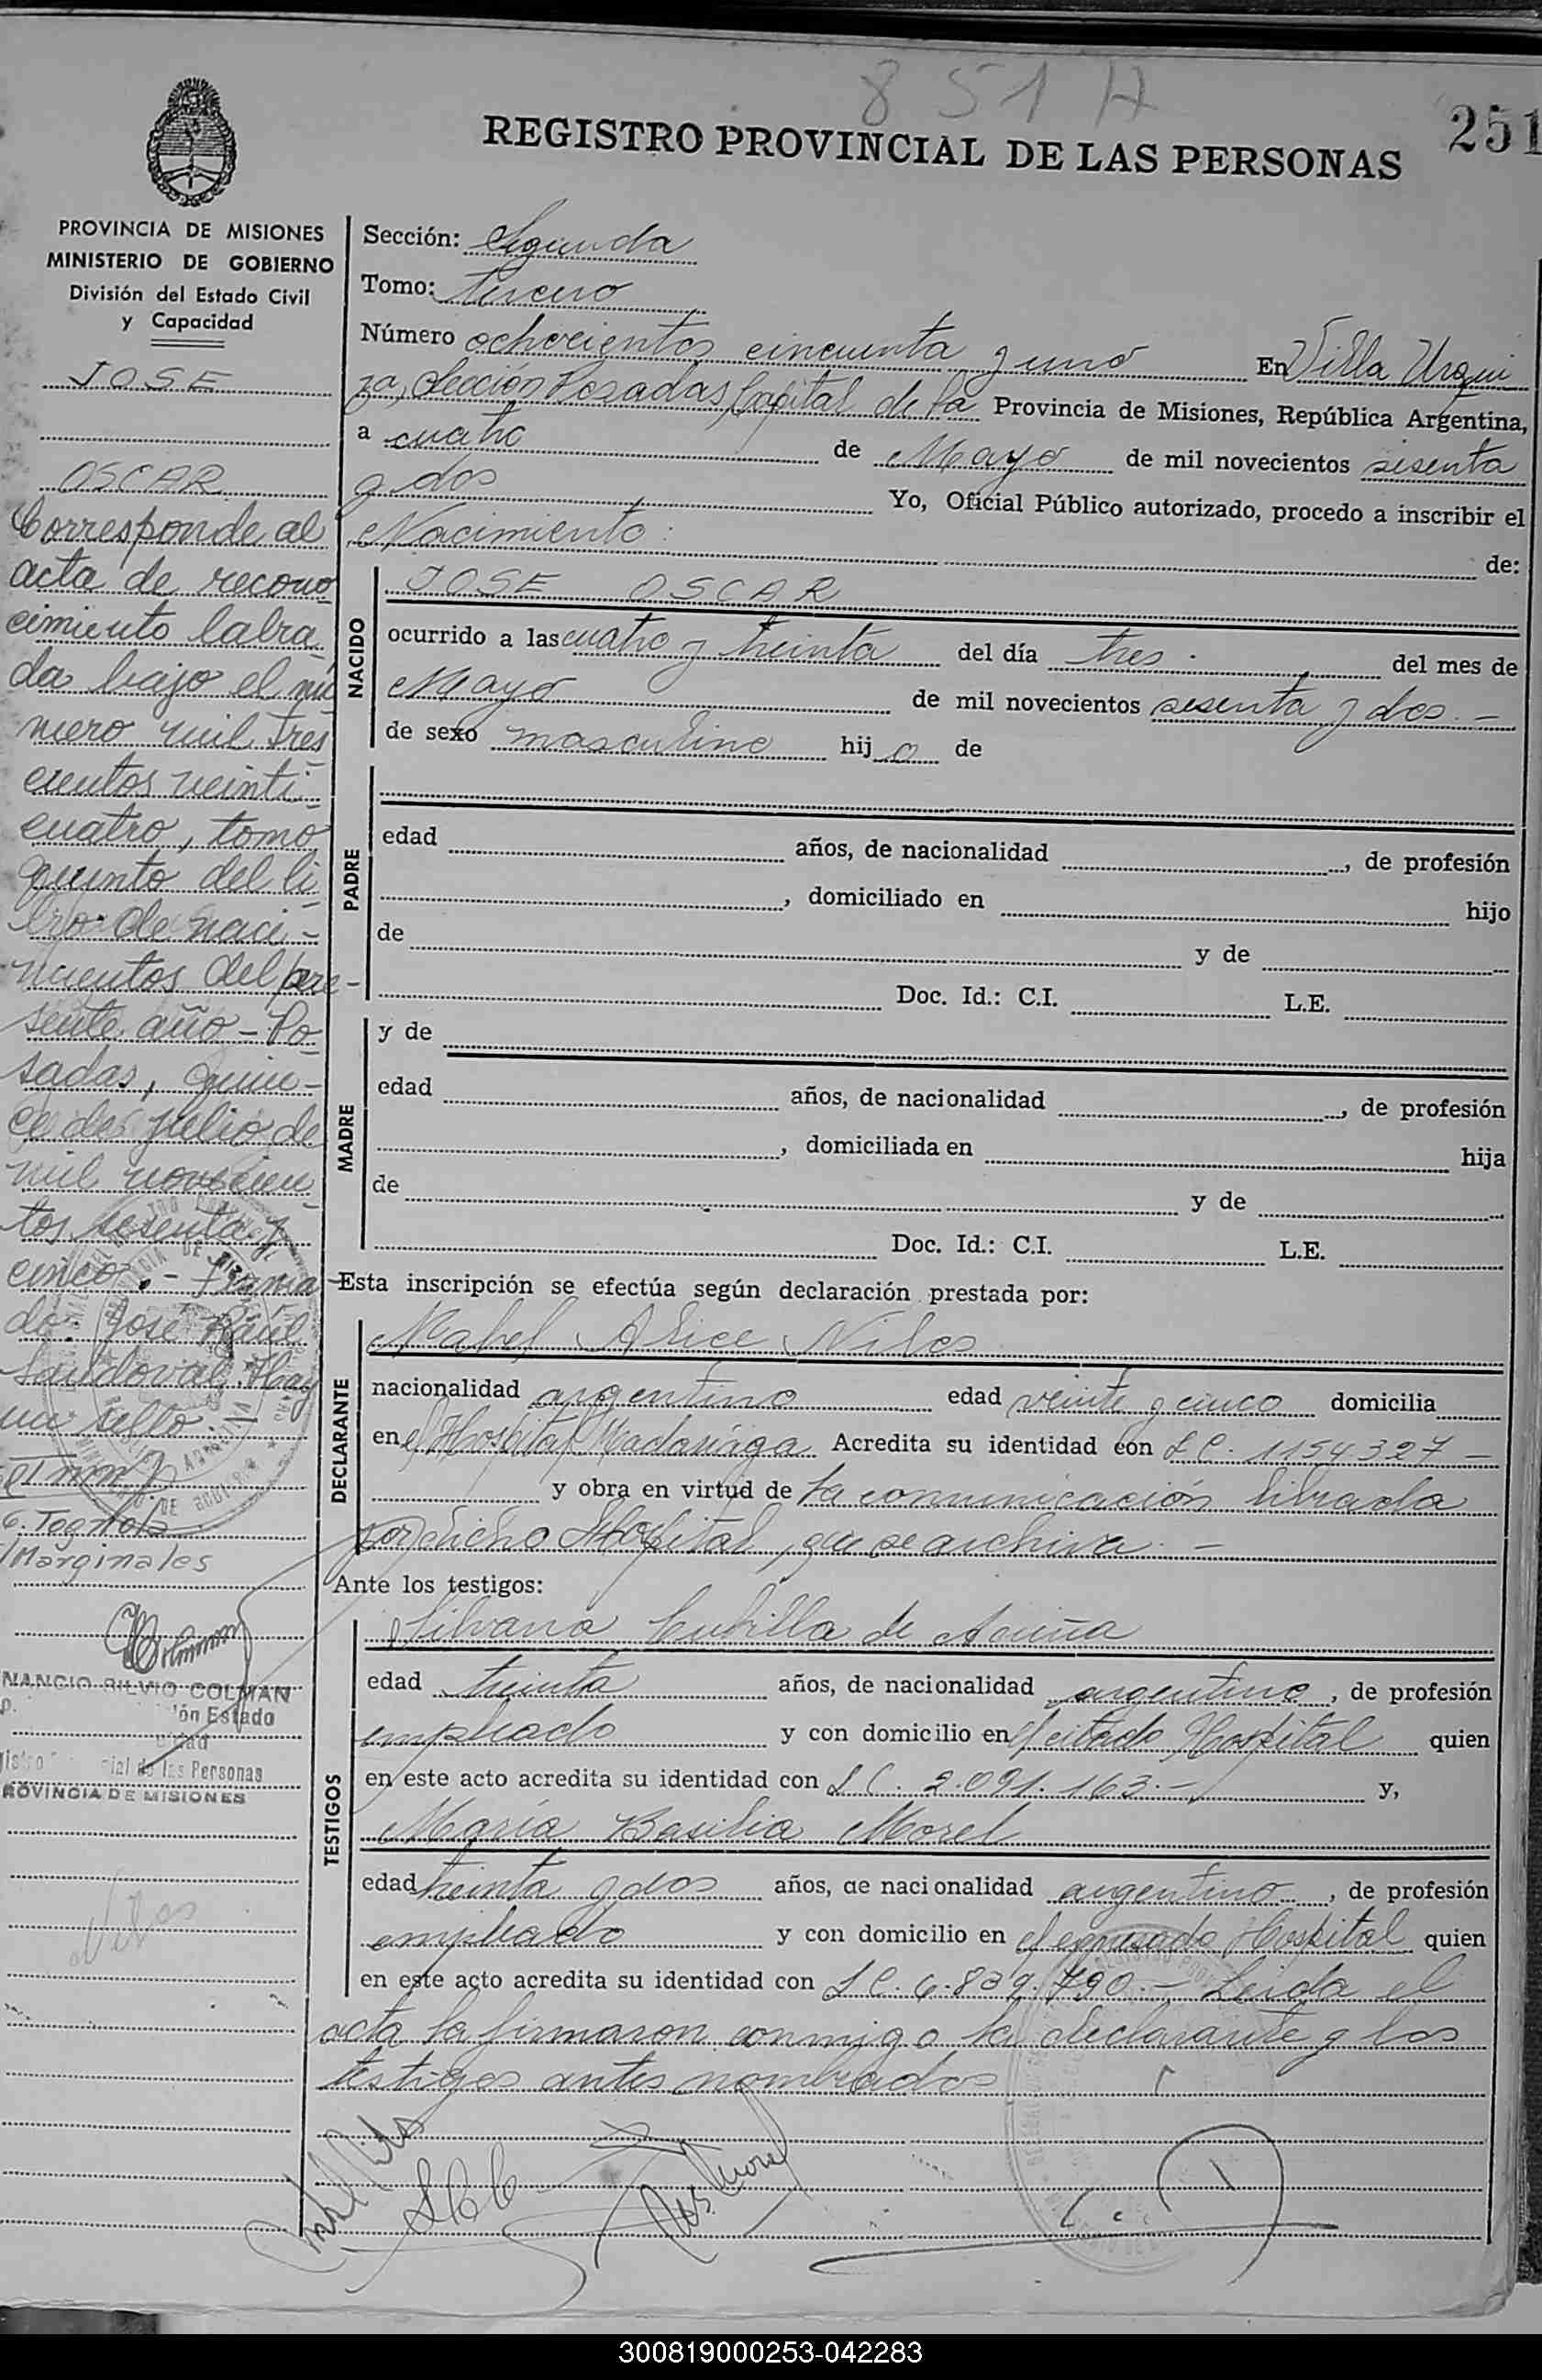 851 A
251
REGISTRO PROVINCIAL DE LAS PERSONAS
PROVINCIA DE MISIONES
MINISTERIO DE GOBIERNO
División del Estado Civil
y Capacidad
JOSE
OSCAR
Corresponde al
acta de recono
cimiento labra
da bajo el nú
mero mil tres
cientos veinti
cuatro, tomo
quinto del li
bro de naci-
mientos del pre-
sente año - Po
sadas, quin-
ce de julio de
mil novecien
tos sesenta y
cinco.- Firma
do: José Raúl
Sandoval. Hay
un sello.-
Marginales
NANCIO SILVIO COLMAN
ón Estado
ial de las Personas
ROVINCIA DE MISIONES
Niles
Sección: Segunda
Tomo: Tercero
Número ochocientos cincuenta y uno En Villa Urqui
za, Sección Posadas, Capital de la Provincia de Misiones, República Argentina,
a cuatro de Mayo de mil novecientos sesenta
y dos Yo, Oficial Público autorizado, procedo a inscribir el
Nacimiento: de:
NACIDO
JOSE OSCAR
ocurrido a las cuatro y treinta del día tres. del mes de
Mayo de mil novecientos sesenta y dos.-
de sexo masculino hijo de
PADRE
edad años, de nacionalidad , de profesión
, domiciliado en hijo
de y de
Doc. Id.: C.I. L.E.
MADRE
y de
edad años, de nacionalidad , de profesión
, domiciliada en hija
de y de
Doc. Id.: C.I. L.E.
Esta inscripción se efectúa según declaración prestada por:
DECLARANTE
Mabel Alice Niles
nacionalidad argentino edad veinte y cinco domicilia
en el Hospital Madariaga Acredita su identidad con L.C. 1154327 -
y obra en virtud de la comunicación librada
por dicho Hospital, que se archiva. -
Ante los testigos:
TESTIGOS
Silvana Cubilla de Acuña
edad treinta años, de nacionalidad argentino, de profesión
empleado y con domicilio en el citado Hospital quien
en este acto acredita su identidad con L.C. 2.091.163.- y,
María Basilia Morel
edad treinta y dos años, de nacionalidad argentino, de profesión
empleado y con domicilio en el expresado Hospital quien
en este acto acredita su identidad con L.C. 6.839.790.- Leida el
acta la firmaron conmigo la declarante y los
testigos antes nombrados
300819000253-042283